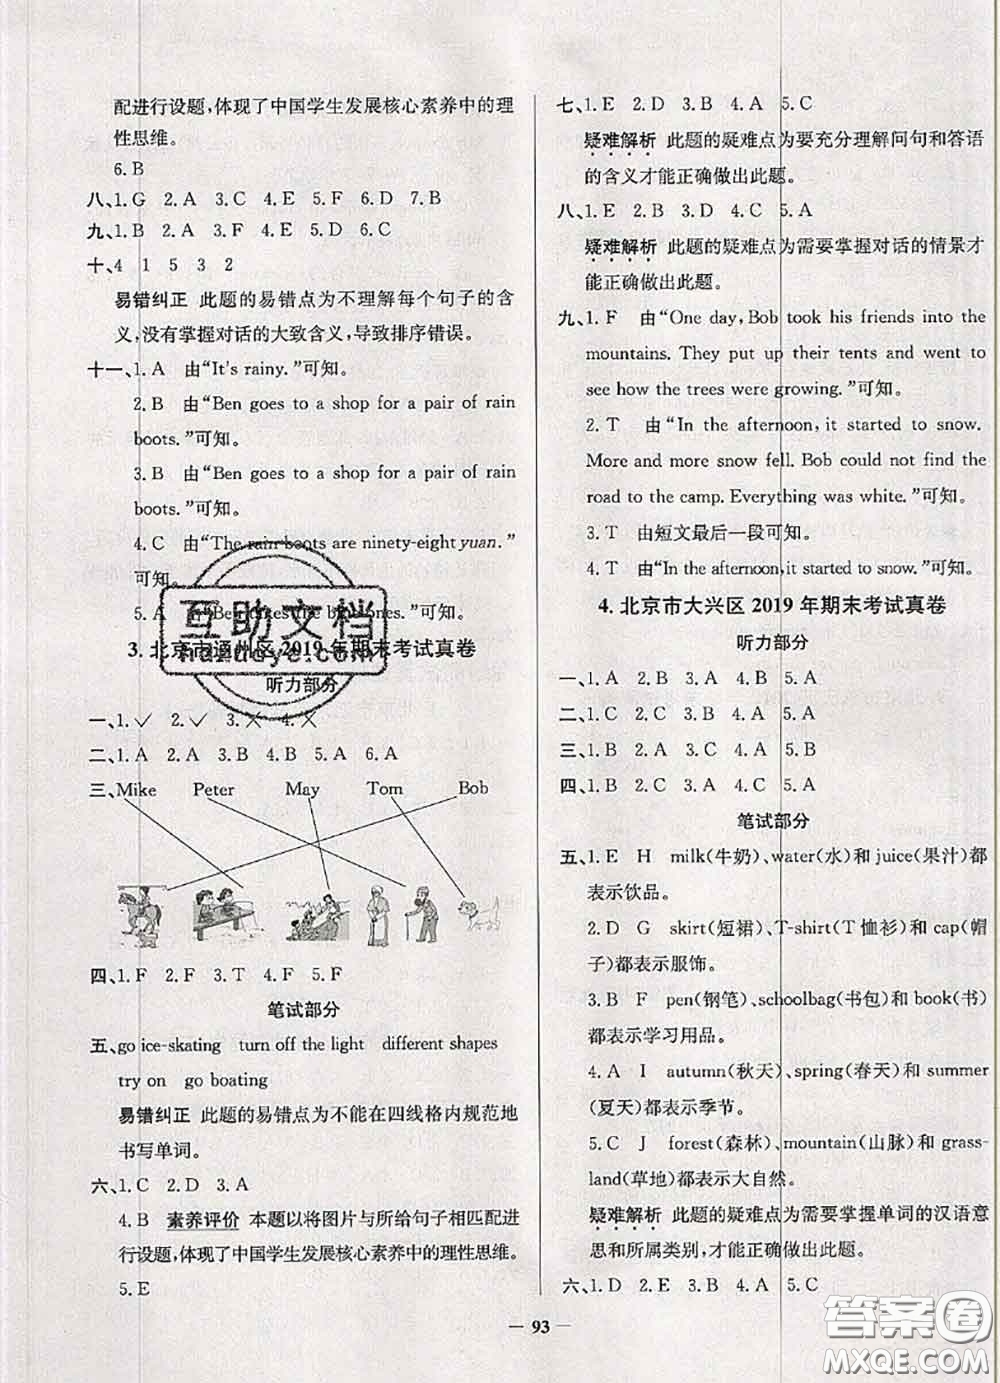 配进行设题,体现了中国学生发展核心素养中的理
性思维。
6.B
八、1.G 2.A 3.C 4.E 5.F 6.D 7.B
九、1.B 2.A 3.F 4.E 5.D 6.C
十、4 1 5 3 2
易错纠正 此题的易错点为不理解每个句子的含
义,没有掌握对话的大致含义,导致排序错误。
十一、1.A 由“It's rainy.”可知。
2.B 由“Ben goes to a shop for a pair of rain
boots.”可知。
3.B 由“Ben goes to a shop for a pair of rain
boots.”可知。
4.C 由“The rain boots are ninety-eight yuan.”
可知。
5.A 由“Ben takes the blue ones.”可知。
3.北京市通州区 2019 年期末考试真卷
听力部分
一、1.✓ 2.✓ 3.✗ 4.✗
二、1.A 2.A 3.B 4.B 5.A 6.A
三、Mike Peter May Tom Bob
四、1.F 2.F 3.T 4.F 5.F
笔试部分
五、go ice-skating turn off the light different shapes
try on go boating
易错纠正 此题的易错点为不能在四线格内规范地
书写单词。
六、1.C 2.D 3.A
4.B 素养评价 本题以将图片与所给句子相匹配进
行设题,体现了中国学生发展核心素养中的理性思维。
5.E
七、1.E 2.D 3.B 4.A 5.C
疑难解析 此题的疑难点为要充分理解问句和答语
的含义才能正确做出此题。
八、1.E 2.B 3.D 4.C 5.A
疑难解析 此题的疑难点为需要掌握对话的情景才
能正确做出此题。
九、1.F 由“One day, Bob took his friends into the
mountains. They put up their tents and went to
see how the trees were growing.”可知。
2.T 由“In the afternoon, it started to snow.
More and more snow fell. Bob could not find the
road to the camp. Everything was white.”可知。
3.T 由短文最后一段可知。
4.T 由“In the afternoon, it started to snow.”可知。
4.北京市大兴区 2019 年期末考试真卷
听力部分
一、1.A 2.B 3.A 4.B 5.A
二、1.C 2.C 3.B 4.A 5.A
三、1.B 2.A 3.C 4.A 5.B
四、1.B 2.A 3.A 4.C 5.A
笔试部分
五、1.E H milk(牛奶)、water(水)和 juice(果汁)都
表示饮品。
2.D G skirt(短裙)、T-shirt(T 恤衫)和 cap(帽
子)都表示服饰。
3.B F pen(钢笔)、schoolbag(书包)和 book(书)
都表示学习用品。
4.A I autumn(秋天)、spring(春天)和 summer
(夏天)都表示季节。
5.C J forest(森林)、mountain(山脉)和 grass-
land(草地)都表示大自然。
疑难解析 此题的疑难点为需要掌握单词的汉语意
思和所属类别,才能正确做出此题。
六、1.D 2.E 3.B 4.A 5.C
— 93 —
互助文档
答案卷
MXQE.COM